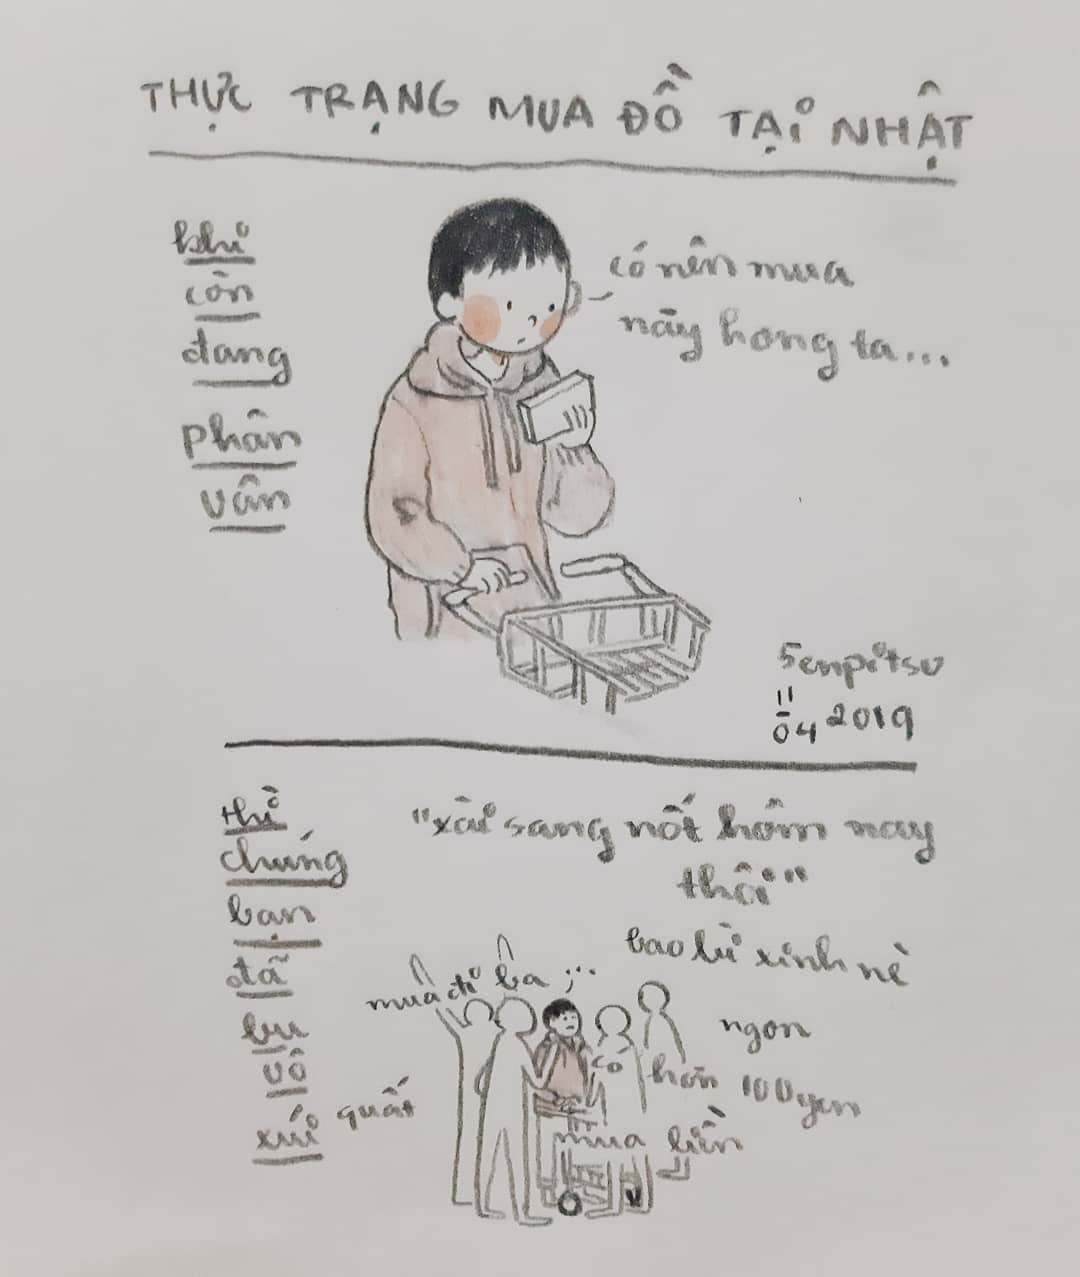 THỰC TRẠNG MUA ĐỒ TẠI NHẬT
khi
còn
đang
phân
vân
có nên mua
này hong ta...
Senpitsu
11
04 2019
thì
chúng
bạn
đã
bu
vô
xúi
"xài sang nốt hôm nay
thôi"
bao bì xinh nè
mua đi ba
ngon
có hơn 100yen
quất
mua liền